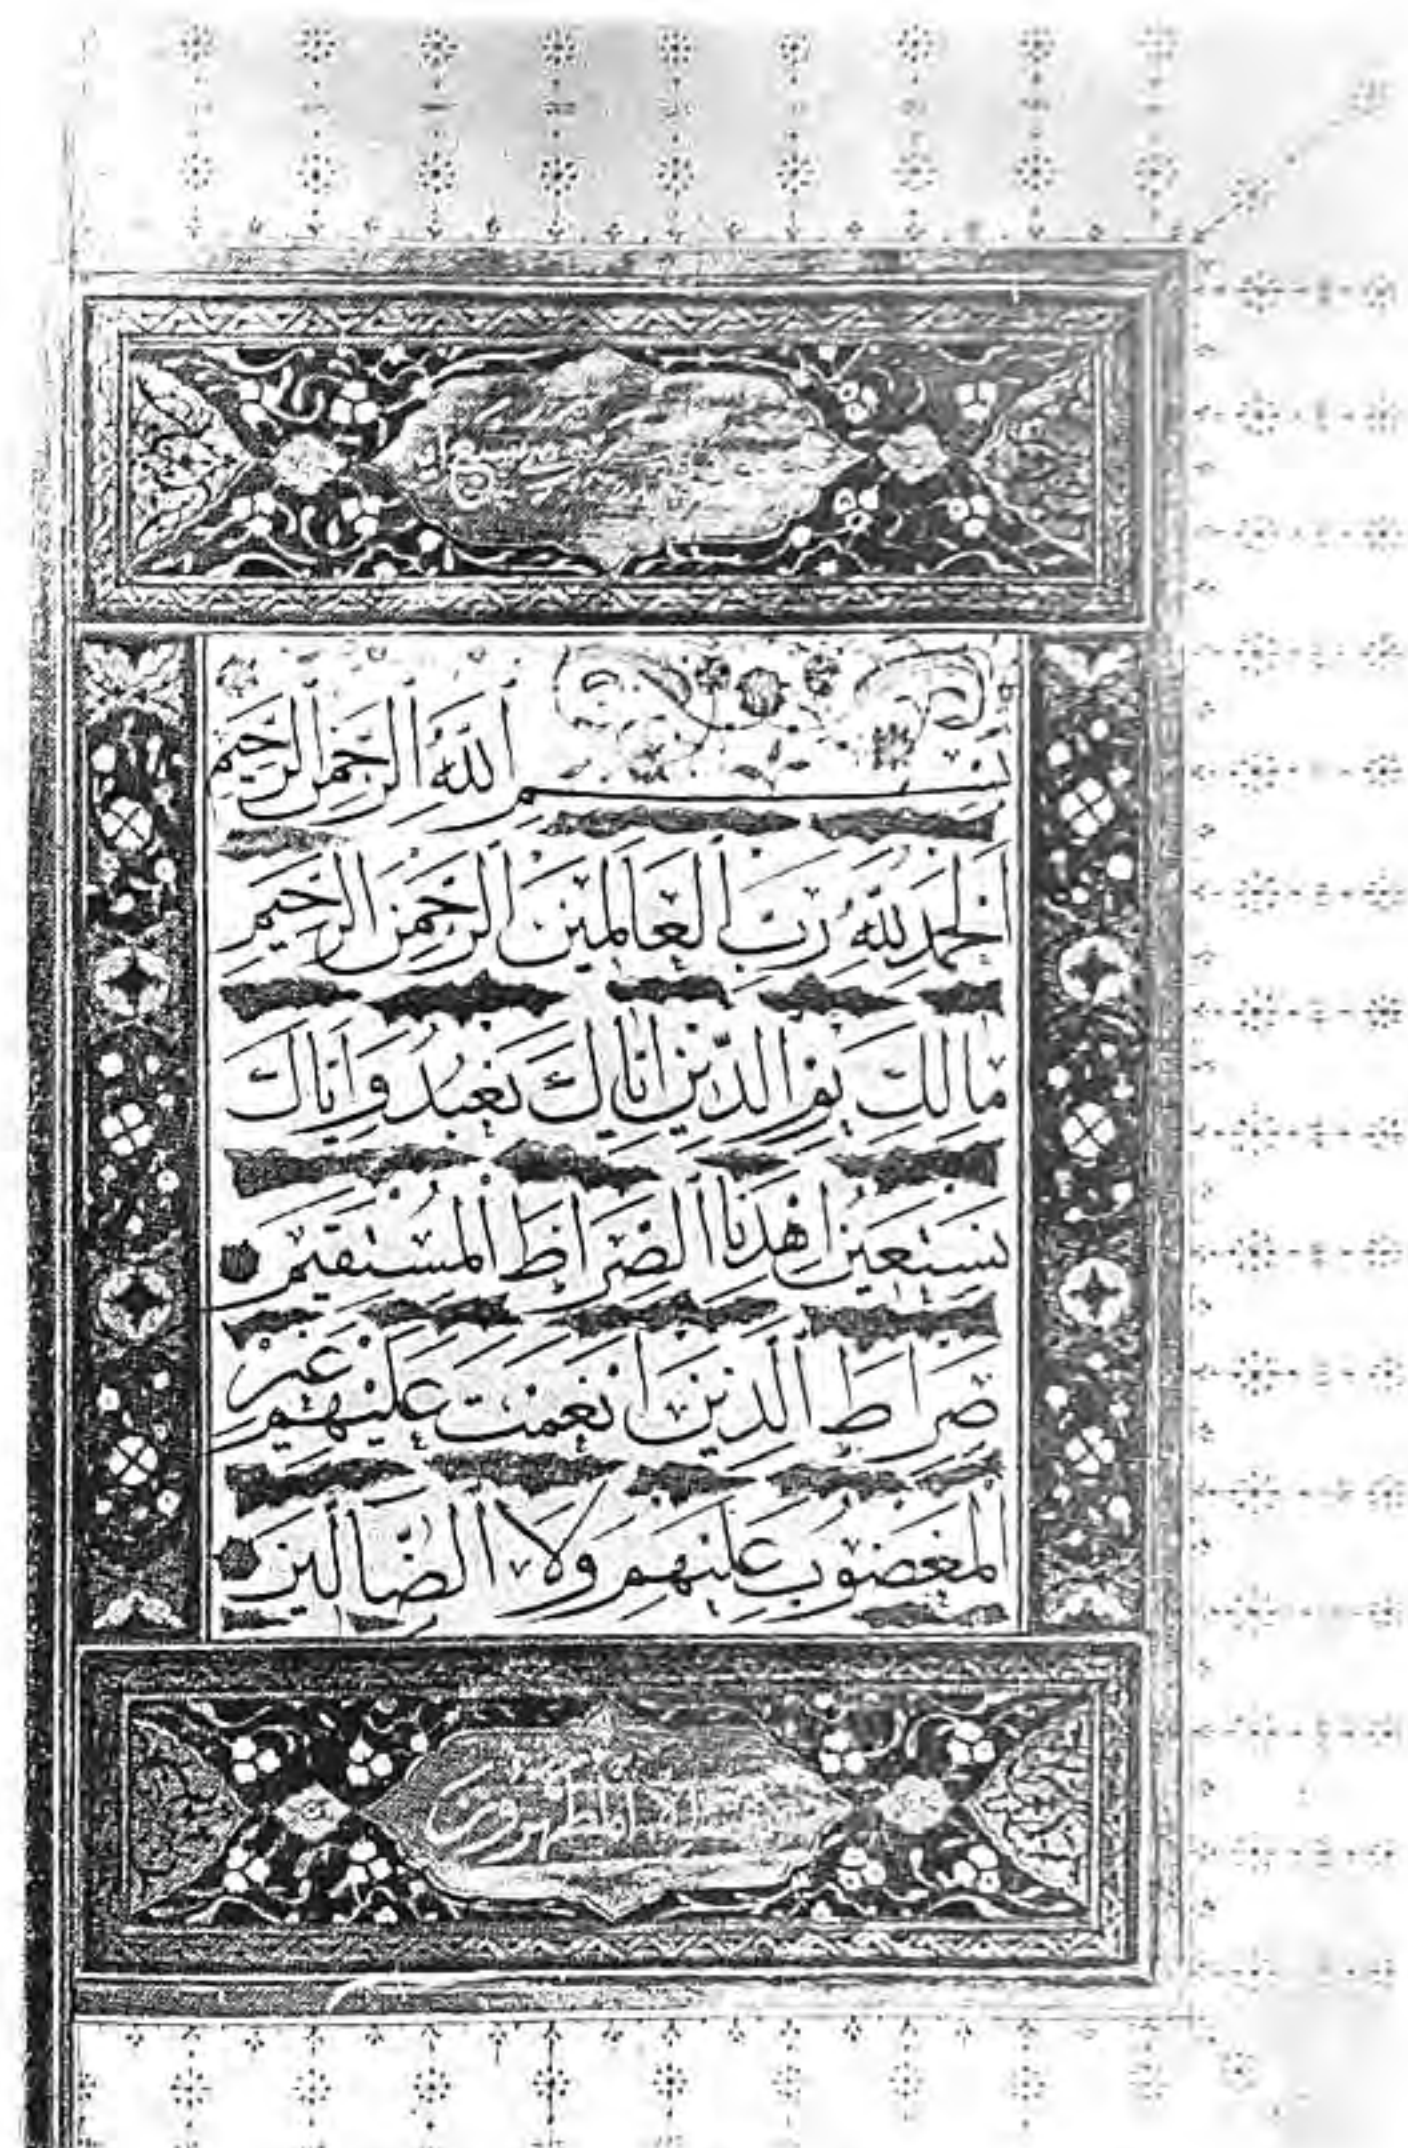 بسم الله الرحمن الرحيم
الحمد لله رب العالمين الرحمن الرحيم
مالك يوم الدين اياك نعبد واياك
نستعين اهدنا الصراط المستقيم
صراط الذين انعمت عليهم غير
المغضوب عليهم ولا الضالين
الا المطهرون